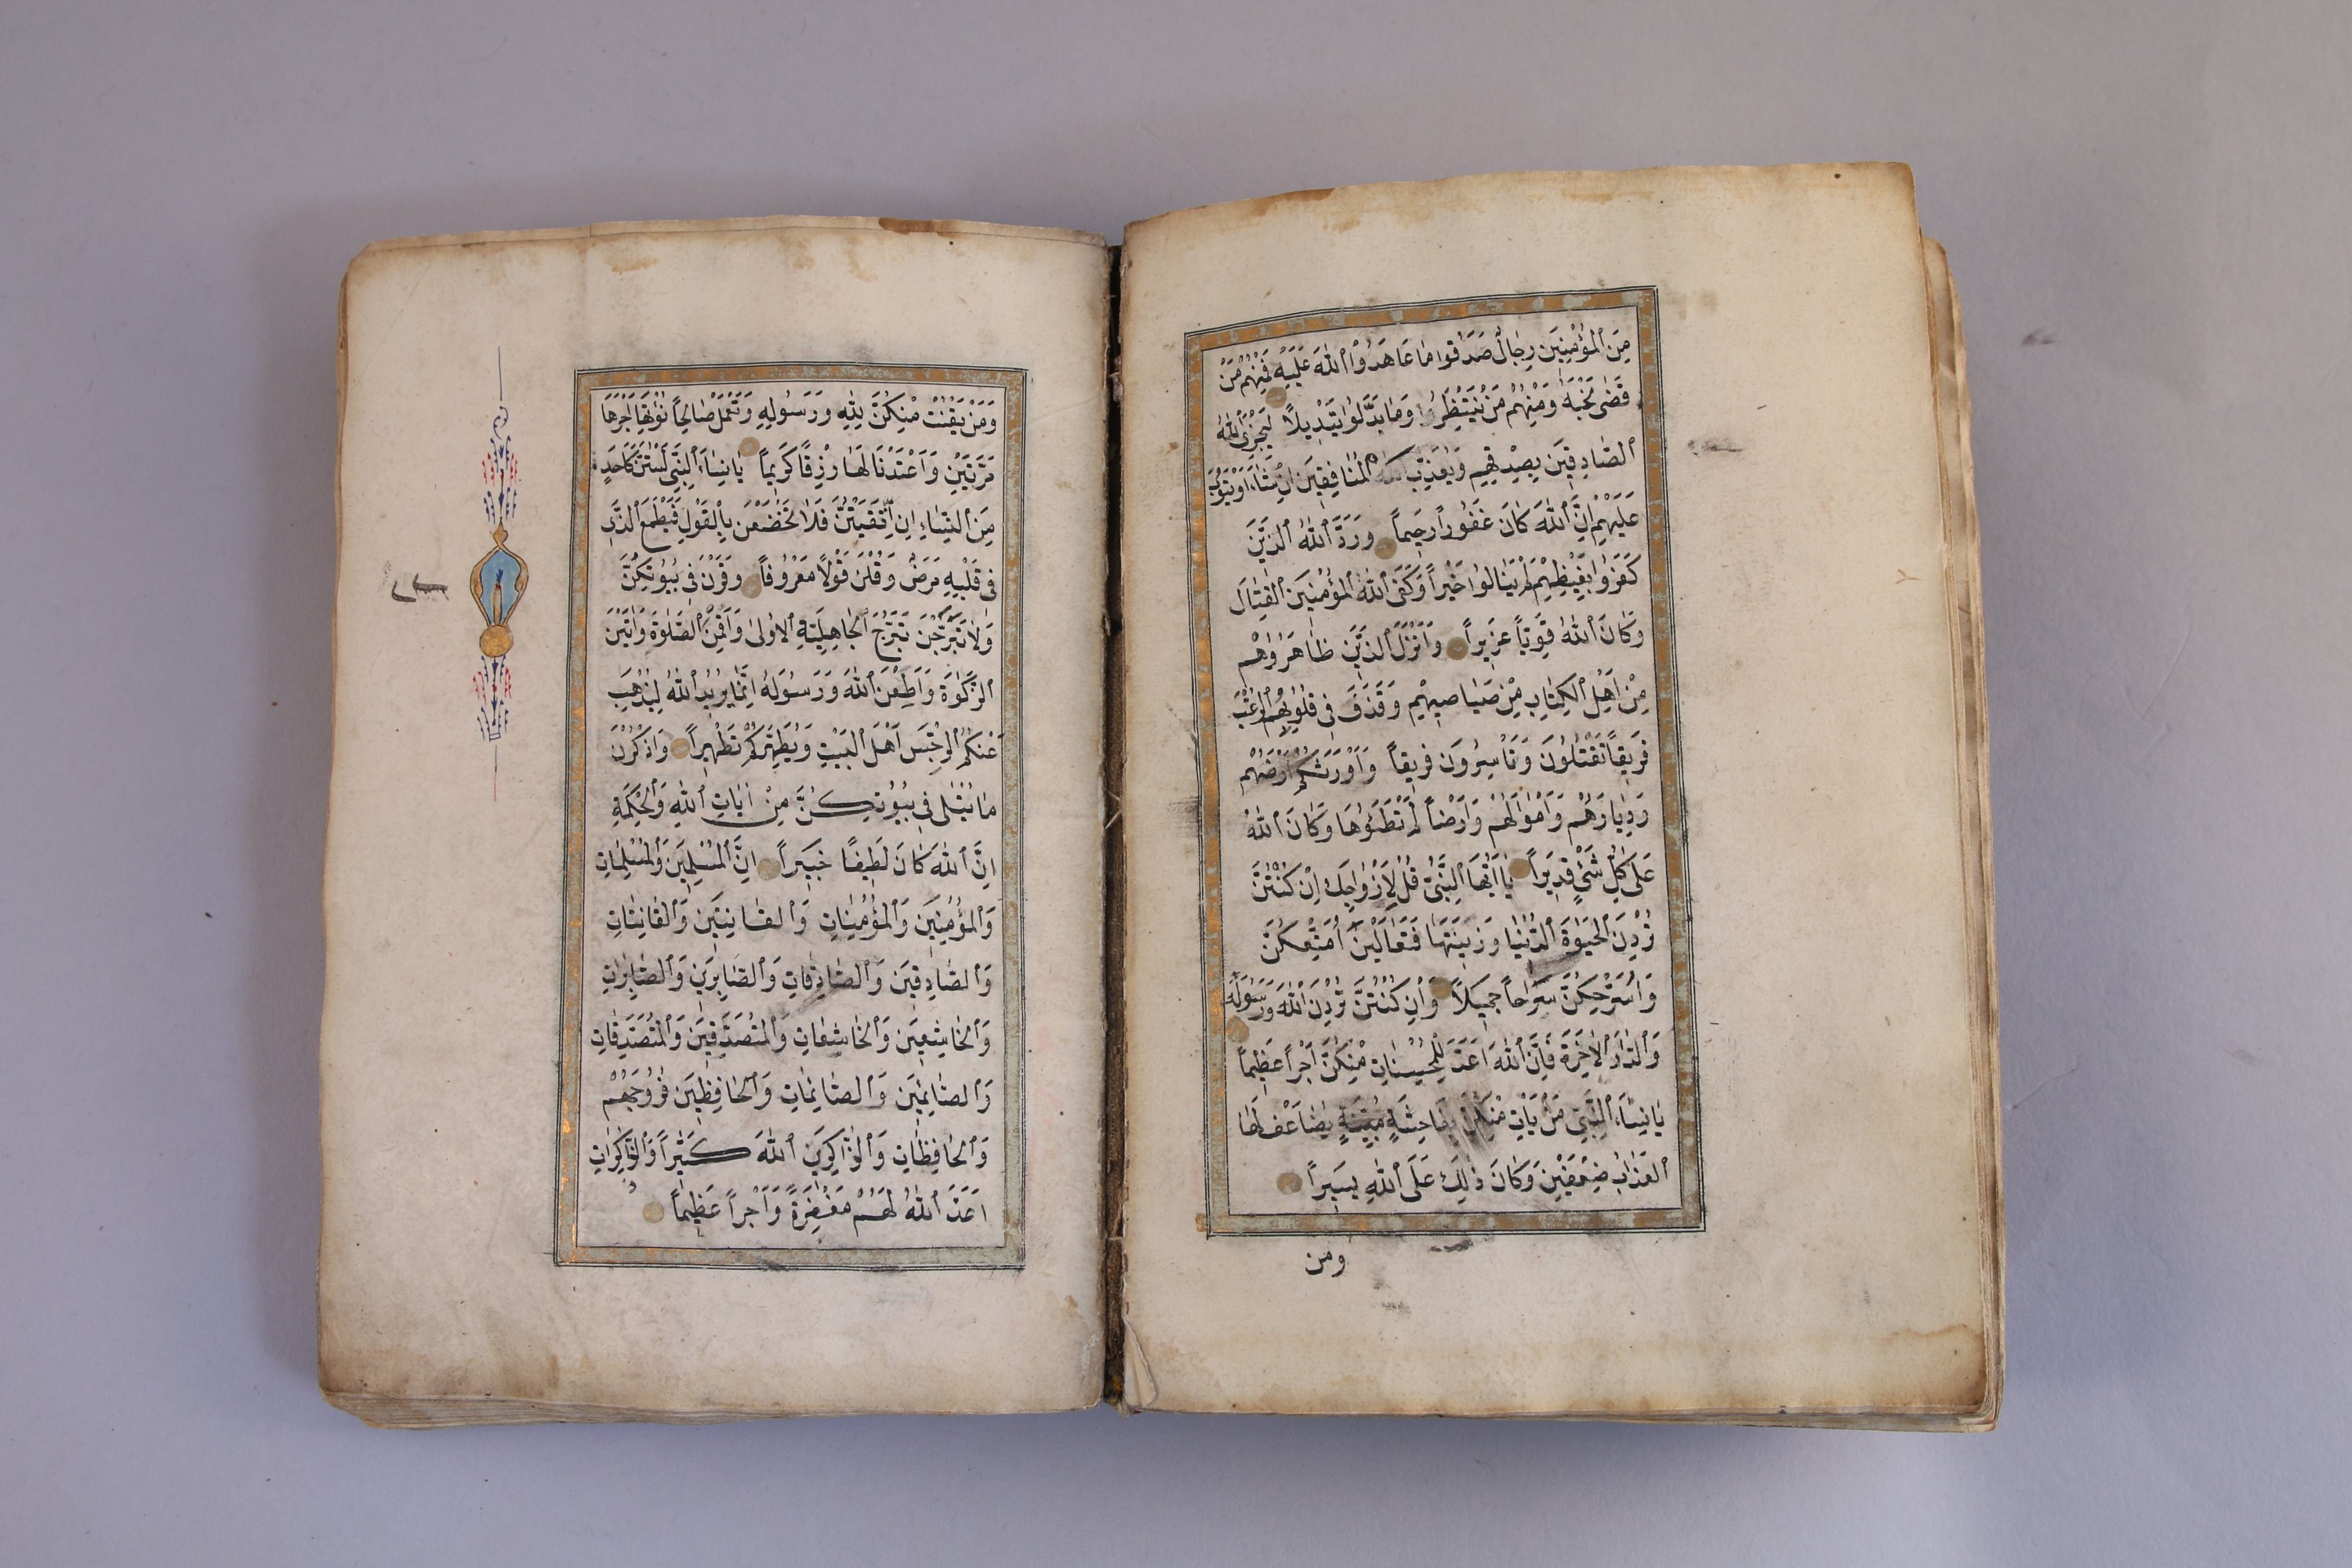 مِنَ ٱلْمُؤْمِنِينَ رِجَالٌ صَدَقُوا مَا عَاهَدُوا ٱللّٰهَ عَلَيْهِ فَمِنْهُمْ مَنْ
قَضٰى نَحْبَهُ وَمِنْهُمْ مَنْ يَنْتَظِرُ وَمَا بَدَّلُوا تَبْدِيلاً لِيَجْزِىَ ٱللّٰهُ
ٱلصَّادِقِينَ بِصِدْقِهِمْ وَيُعَذِّبَ ٱلْمُنَافِقِينَ اِنْ شَاءَ اَوْ يَتُوبَ
عَلَيْهِمْ اِنَّ ٱللّٰهَ كَانَ غَفُوراً رَحِيماً وَرَدَّ ٱللّٰهُ ٱلَّذِينَ
كَفَرُوا بِغَيْظِهِمْ لَمْ يَنَالُوا خَيْراً وَكَفَى ٱللّٰهُ ٱلْمُؤْمِنِينَ ٱلْقِتَالَ
وَكَانَ ٱللّٰهُ قَوِيّاً عَزِيزاً وَاَنْزَلَ ٱلَّذِينَ ظَاهَرُوهُمْ
مِنْ اَهْلِ ٱلْكِتَابِ مِنْ صَيَاصِيهِمْ وَقَذَفَ فِى قُلُوبِهِمُ ٱلرُّعْبَ
فَرِيقاً تَقْتُلُونَ وَتَأْسِرُونَ فَرِيقاً وَاَوْرَثَكُمْ اَرْضَهُمْ
وَدِيَارَهُمْ وَاَمْوَالَهُمْ وَاَرْضاً لَمْ تَطَـُٔوهَا وَكَانَ ٱللّٰهُ
عَلٰى كُلِّ شَىْءٍ قَدِيراً يَا اَيُّهَا ٱلنَّبِىُّ قُلْ لِاَزْوَاجِكَ اِنْ كُنْتُنَّ
تُرِدْنَ ٱلْحَيٰوةَ ٱلدُّنْيَا وَزِينَتَهَا فَتَعَالَيْنَ اُمَتِّعْكُنَّ
وَاُسَرِّحْكُنَّ سَرَاحاً جَمِيلاً وَاِنْ كُنْتُنَّ تُرِدْنَ ٱللّٰهَ وَرَسُولَهُ
وَٱلدَّارَ ٱلْاٰخِرَةَ فَاِنَّ ٱللّٰهَ اَعَدَّ لِلْمُحْسِنَاتِ مِنْكُنَّ اَجْراً عَظِيماً
يَا نِسَاءَ ٱلنَّبِىِّ مَنْ يَأْتِ مِنْكُنَّ بِفَاحِشَةٍ مُبَيِّنَةٍ يُضَاعَفْ لَهَا
ٱلْعَذَابُ ضِعْفَيْنِ وَكَانَ ذٰلِكَ عَلَى ٱللّٰهِ يَسِيراً
ومن
وَمَنْ يَقْنُتْ مِنْكُنَّ لِلّٰهِ وَرَسُولِهِ وَتَعْمَلْ صَالِحاً نُؤْتِهَا اَجْرَهَا
مَرَّتَيْنِ وَاَعْتَدْنَا لَهَا رِزْقًا كَرِيماً يَا نِسَاءَ ٱلنَّبِىِّ لَسْتُنَّ كَاَحَدٍ
مِنَ ٱلنِّسَاءِ اِنِ اتَّقَيْتُنَّ فَلَا تَخْضَعْنَ بِالْقَوْلِ فَيَطْمَعَ ٱلَّذِى
فِى قَلْبِهِ مَرَضٌ وَقُلْنَ قَوْلاً مَعْرُوفاً وَقَرْنَ فِى بُيُوتِكُنَّ
وَلَا تَبَرَّجْنَ تَبَرُّجَ ٱلْجَاهِلِيَّةِ ٱلْاُولٰى وَاَقِمْنَ ٱلصَّلٰوةَ وَاٰتِينَ
ٱلزَّكٰوةَ وَاَطِعْنَ ٱللّٰهَ وَرَسُولَهُ اِنَّمَا يُرِيدُ ٱللّٰهُ لِيُذْهِبَ
عَنْكُمُ ٱلرِّجْسَ اَهْلَ ٱلْبَيْتِ وَيُطَهِّرَكُمْ تَطْهِيراً وَاذْكُرْنَ
مَا يُتْلٰى فِى بُيُوتِكُنَّ مِنْ اٰيَاتِ ٱللّٰهِ وَٱلْحِكْمَةِ
اِنَّ ٱللّٰهَ كَانَ لَطِيفًا خَبِيراً اِنَّ ٱلْمُسْلِمِينَ وَٱلْمُسْلِمَاتِ
وَٱلْمُؤْمِنِينَ وَٱلْمُؤْمِنَاتِ وَٱلْقَانِتِينَ وَٱلْقَانِتَاتِ
وَٱلصَّادِقِينَ وَٱلصَّادِقَاتِ وَٱلصَّابِرِينَ وَٱلصَّابِرَاتِ
وَٱلْخَاشِعِينَ وَٱلْخَاشِعَاتِ وَٱلْمُتَصَدِّقِينَ وَٱلْمُتَصَدِّقَاتِ
وَٱلصَّائِمِينَ وَٱلصَّائِمَاتِ وَٱلْحَافِظِينَ فُرُوجَهُمْ
وَٱلْحَافِظَاتِ وَٱلذَّاكِرِينَ ٱللّٰهَ كَثِيراً وَٱلذَّاكِرَاتِ
اَعَدَّ ٱللّٰهُ لَهُمْ مَغْفِرَةً وَاَجْراً عَظِيماً